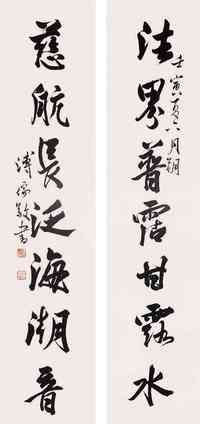 法界普霑甘露水
壬寅夏六月朔
慈航長泛海潮音
溥儒敬書